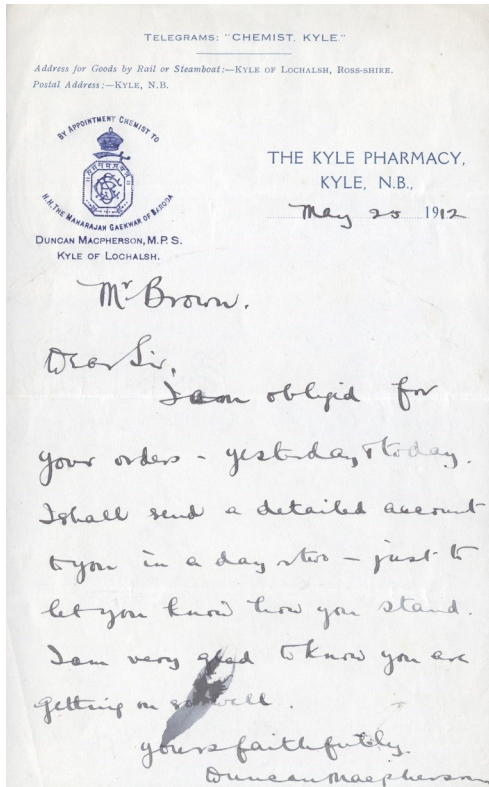 TELEGRAMS: "CHEMIST, KYLE."
Address for Goods by Rail or Steamboat:—KYLE OF LOCHALSH, ROSS-SHIRE.
Postal Address:—KYLE, N.B.
BY APPOINTMENT CHEMIST TO
H.H. THE MAHARAJAH GAEKWAR OF BARODA
DUNCAN MACPHERSON, M.P.S.
KYLE OF LOCHALSH.
THE KYLE PHARMACY,
KYLE, N.B.,
May 25 1912
Mr Brown.
Dear Sir,
I am obligid for
your orders - yesterday & today.
I shall send a detailed account
to you in a day or two - just to
let you know how you stand.
I am very glad to know you are
getting on so well.
yours faithfully.
Duncan Macpherson